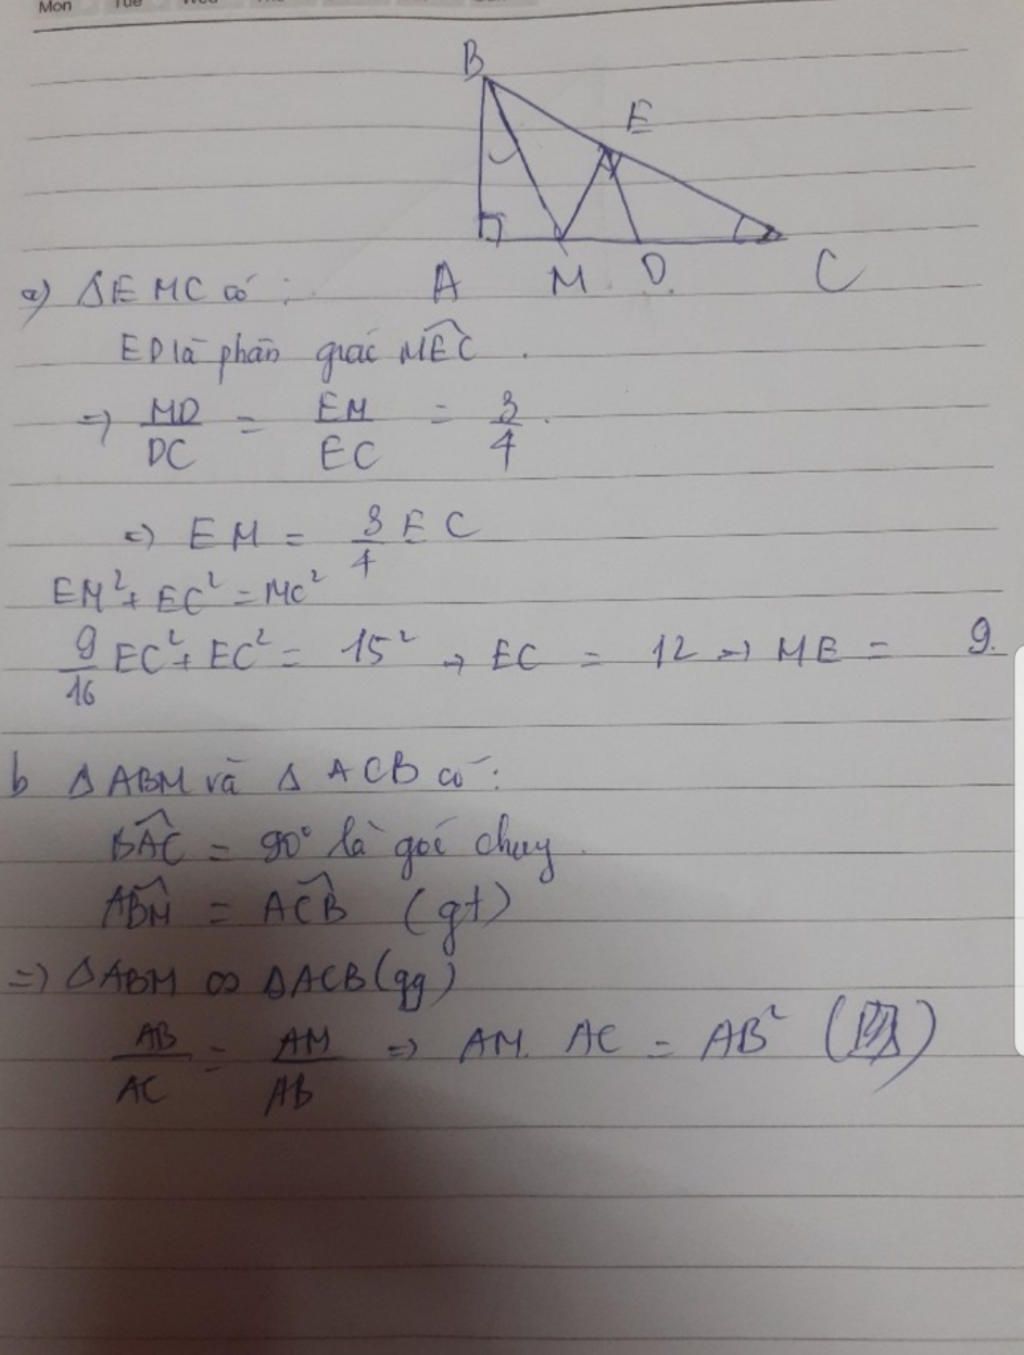 Mon Tue Wed
B
E
A M D C
a) ΔEMC có :
ED là phân giác MÊC .
=> MD/DC = EM/EC = 3/4 .
=> EM = 3/4 EC
EM² + EC² = MC²
9/16 EC² + EC² = 15² → EC = 12 → ME = 9.
b ΔABM và Δ ACB có :
BÂC = 90° là góc chug
AB̂M = AĈB (gt)
=> ΔABM ∽ ΔACB (gg)
AB/AC = AM/AB => AM. AC = AB²